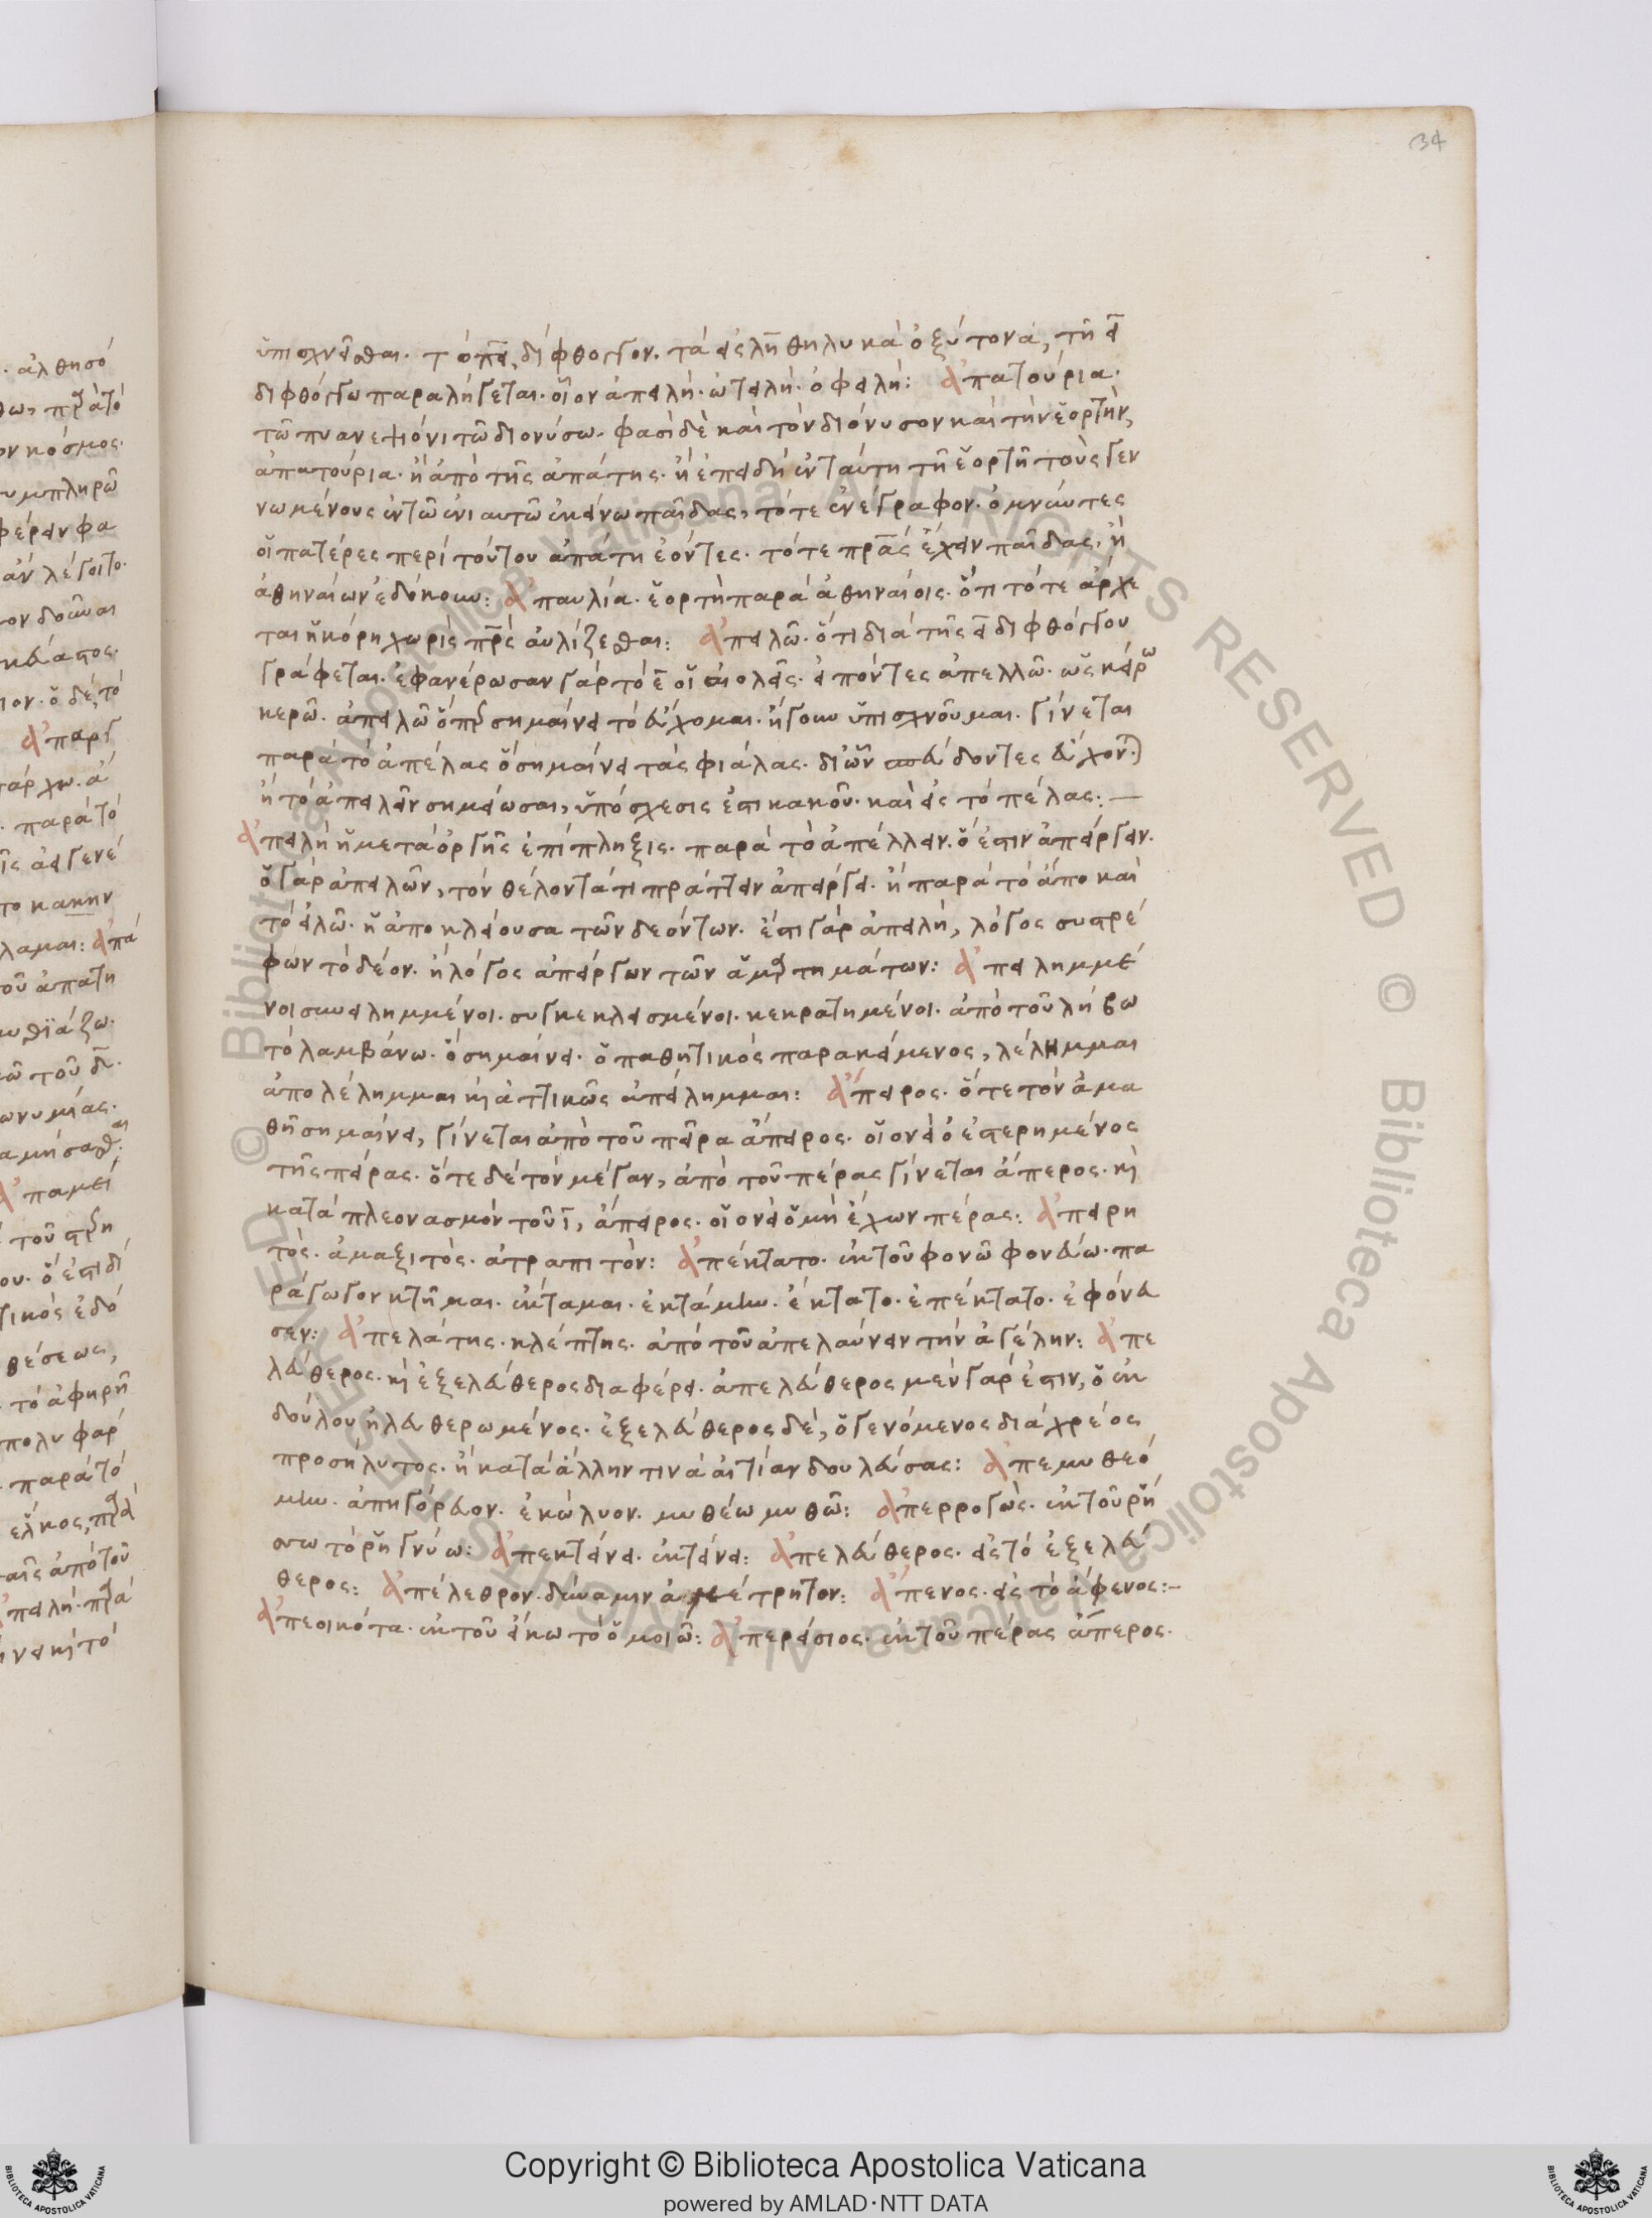 34
ὑπισχνεῖσθαι. τὸ πει, δίφθογγον. τὰ εἰς λη θηλυκὰ ὀξύτονα, τῆ ει
διφθόγγω παραλήγεται. οἷον ἀπειλή. ὠτειλή. ὀφειλή: ἀπατούρια.
τῶ πυανεψιόνι τῶ διονύσω. φασὶ δὲ καὶ τὸν διόνυσον καὶ τὴν ἑορτὴν,
ἀπατούρια. ἢ ἀπὸ τῆς ἀπάτης. ἢ ἐπειδὴ ἐν ταύτη τῆ ἑορτῆ τοὺς γεν
νωμένους ἐν τῶ ἐνιαυτῶ ἐκείνω παῖδας, τότε ἐνέγραφον. ὀμνύντες
οἱ πατέρες περὶ τούτου ἀπάτη ἐόντες. τότε πρας ἔχειν παῖδας, ἢ
ἀθηναίων ἐδόκουν: ἀπαυλία. ἑορτὴ παρὰ ἀθηναίοις. ὅτι τότε ἄρχε
ται ἡ κόρη χωρὶς πρς αὐλίζεσθαι: ἀπειλῶ. ὅτι διὰ τῆς ει διφθόγγου
γράφεται. ἐφανέρωσαν γὰρ τὸ ε οἱ αἰολεῖς. εἰπόντες ἀπελλῶ. ὡς κείρω
κερῶ. ἀπειλῶ ὅπερ σημαίνει τὸ εὔχομαι. ἤγουν ὑπισχνοῦμαι. γίνεται
παρὰ τὸ ἀπέλας ὃ σημαίνει τὰς φιάλας. δι' ὧν σπεύδοντες εὔχοντ.
ἢ τὸ ἀπειλεῖν σημειώσαι, ὑπόσχεσις ἐστι κακοῦ. καὶ εἰς τὸ πέλας:
ἀπειλὴ ἡ μετὰ ὀργῆς ἐπίπληξις. παρὰ τὸ ἀπέλλειν. ὅ ἐστιν ἀπείργειν.
ὁ γὰρ ἀπειλῶν, τὸν θέλοντά τι πράττειν ἀπείργει. ἢ παρὰ τὸ ἀπο καὶ
τὸ εἰλῶ. ἡ ἀποκλείουσα τῶν δεόντων. ἔστι γὰρ ἀπειλή, λόγος συστρέ
φων τὸ δέον. ἢ λόγος ἀπείργων τῶν ἁμρτημάτων: ἀπειλημμέ
νοι συνειλημμένοι. συγκεκλεισμένοι. κεκρατημένοι. ἀπὸ τοῦ λήβω
τὸ λαμβάνω. ὃ σημαίνει. ὁ παθητικὸς παρακείμενος, λέλημμαι
ἀπολέλημμαι κὶ ἀττικῶς ἀπείλημμαι: ἄπειρος. ὅτε τὸν ἀμα
θῆ σημαίνει, γίνεται ἀπὸ τοῦ πεῖρα ἄπειρος. οἱονεὶ ὁ ἐστερημένος
τῆς πείρας. ὅτε δὲ τὸν μέγαν, ἀπὸ τοῦ πέρας γίνεται ἄπερος. κὶ
κατὰ πλεονασμὸν τοῦ ι, ἄπειρος. οἱονεὶ ὁ μὴ ἔχων πέρας: ἀπειρη
τός. ἁμαξιτός. ἀτραπιτόν: ἀπέκτατο. ἐκ τοῦ φονῶ φονεύω. πα
ράγωγον κτῆμαι. ἔκταμαι. ἐκτάμην. ἔκτατο. ἐπέκτατο. ἐφόνευ
σεν: ἀπελάτης. κλέπτης. ἀπὸ τοῦ ἀπελαύνειν τὴν ἀγέλην: ἀπε
λεύθερος. κὶ ἐξελεύθερος διαφέρει. ἀπελεύθερος μὲν γάρ ἐστιν, ὁ ἐκ
δούλου ἠλευθερωμένος. ἐξελεύθερος δέ, ὁ γενόμενος διὰ χρέος
προσήλυτος. ἢ κατὰ ἄλλην τινὰ αἰτίαν δουλεύσας: ἀπεμυθεό
μην. ἀπηγόρευον. ἐκώλυον. μυθέω μυθῶ: ἀπερρογώς. ἐκ τοῦ ῥή
σσω τὸ ῥηγνύω: ἀπεκτείνει. ἐκτείνει: ἀπελεύθερος. εἰς τὸ ἐξελεύ
θερος: ἀπέλεθρον. δύναμιν ἀμέτρητον: ἄπενος. εἰς τὸ ἄφενος:
ἀπεοικότα. ἐκ τοῦ εἴκω τὸ ὁμοιῶ: ἀπερείσιος. ἐκ τοῦ πέρας ἄπερος.
Copyright © Biblioteca Apostolica Vaticana
powered by AMLAD·NTT DATA